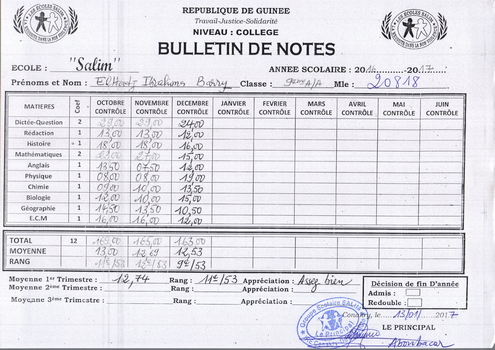 REPUBLIQUE DE GUINEE
Travail-Justice-Solidarité
NIVEAU : COLLEGE
BULLETIN DE NOTES
ECOLE : "Salim" ANNEE SCOLAIRE : 2016 - 2017
Prénoms et Nom : ElHadj Ibrahima Barry Classe : 9ème A/A Mle : 20818
MATIERES Coef OCTOBRE CONTRÔLE NOVEMBRE CONTRÔLE DECEMBRE CONTRÔLE JANVIER CONTRÔLE FEVRIER CONTRÔLE MARS CONTRÔLE AVRIL CONTRÔLE MAI CONTRÔLE JUIN CONTRÔLE
Dictée-Question 2 24,00
Rédaction 1 13,00 13,00 12,00
Histoire 1 18,00 18,00 16,00
Mathématiques 2 27,00 15,00
Anglais 1 13,50 07,50
Physique 1 08,00 08,00 19,00
Chimie 1 09,00 10,00 13,50
Biologie 1 12,00 10,00 15,00
Géographie 1 14,50 13,50 10,50
E.C.M 1 16,00 16,00 12,00
TOTAL 12 169,00 165,00 163,00
MOYENNE 13,00 12,69 12,53
RANG 11e/53 12e/53 9e/53
Moyenne 1er Trimestre : 12,74 Rang : 11e/53 Appréciation : Assez bien
Moyenne 2ème Trimestre : Rang : Appréciation :
Moyenne 3ème Trimestre : Rang : Appréciation :
Décision de fin D'année
Admis :
Redouble :
Conakry, le 13/01/2017
LE PRINCIPAL
Groupe Scolaire SALIM
Le Principal
Aboubacar